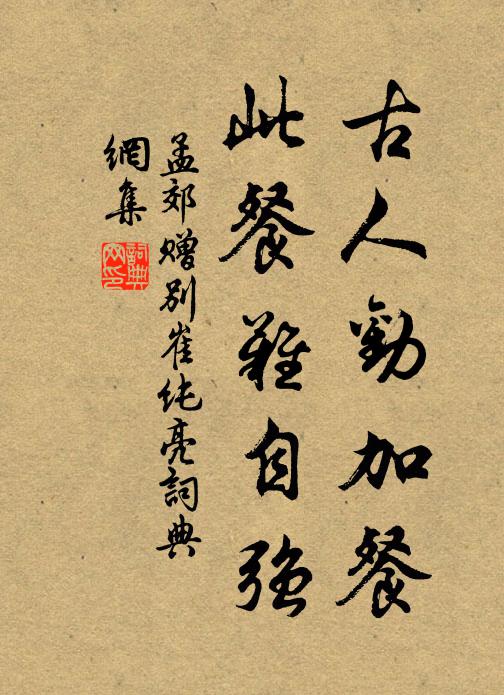 古人勸加餐
此餐難自強
孟郊贈別崔純亮詞典
網集
詞典
網印